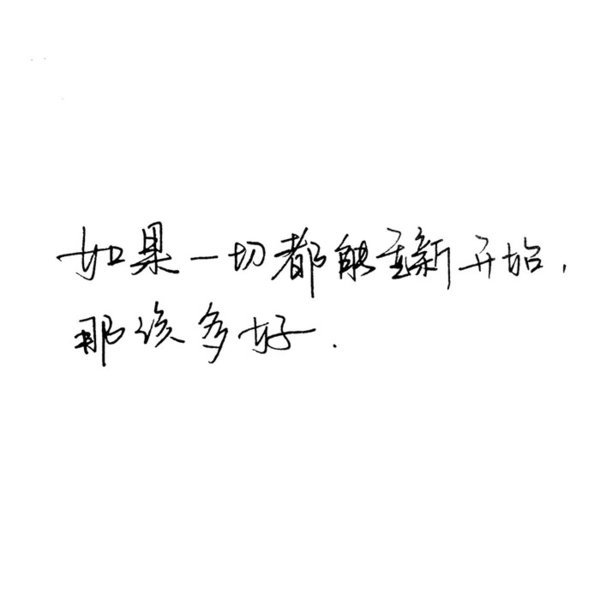 如果一切都能重新开始,
那该多好.